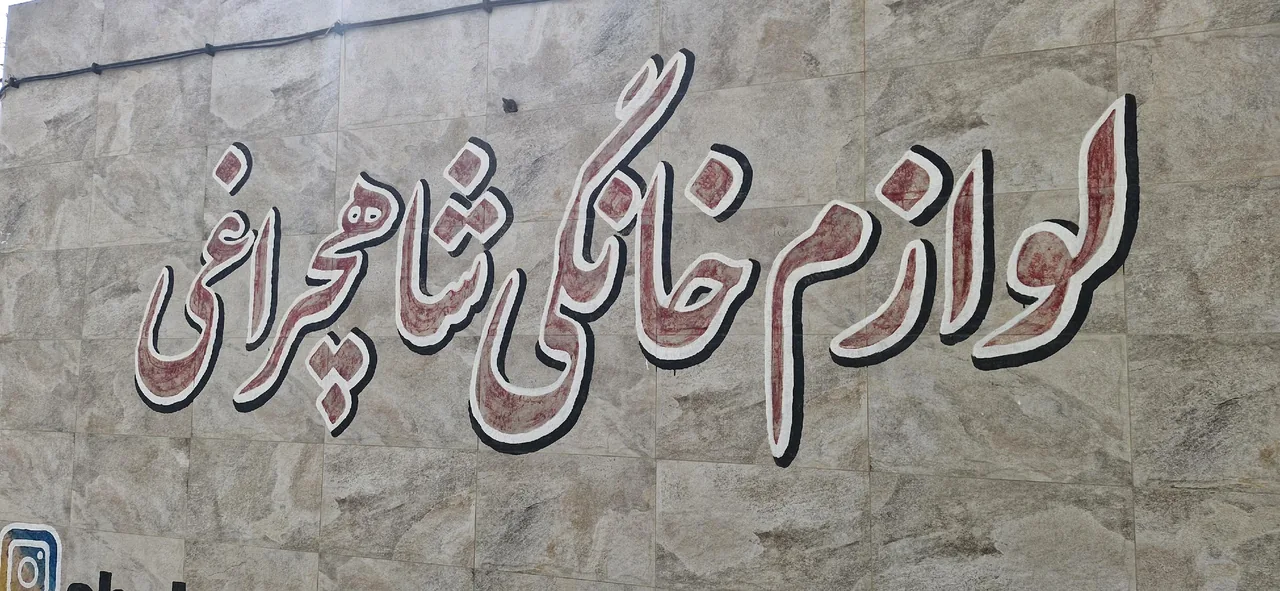 لوازم خانگی شاهچراغی